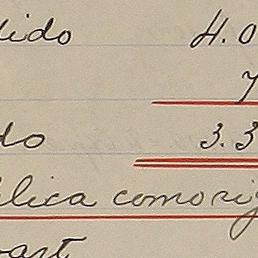 dido 4.0
7
do 3.3
lica comorig
part